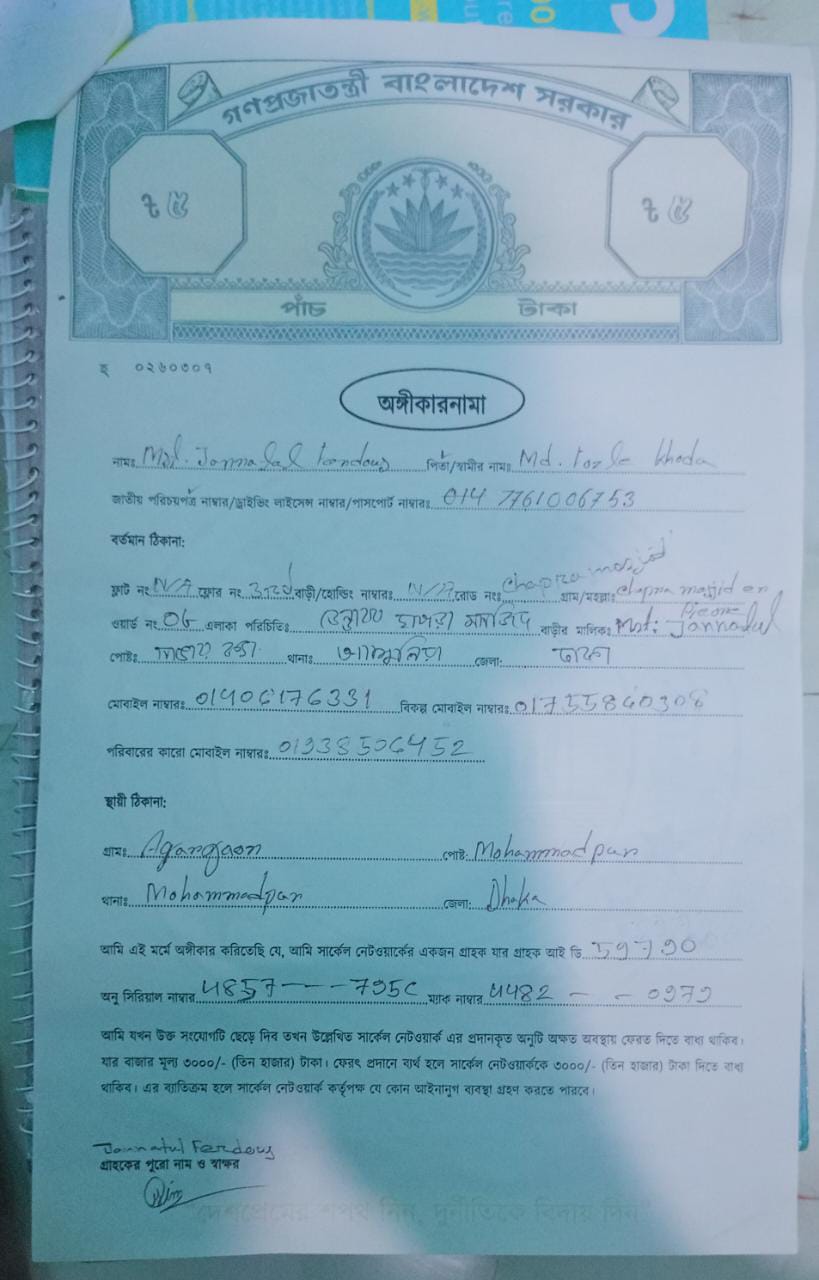 গণপ্রজাতন্ত্রী বাংলাদেশ সরকার
৳ ৫ ৳ ৫
পাঁচ টাকা
হ ০২৬০৩০৭
অঙ্গীকারনামা
নামঃ Mst. পিতা/স্বামীর নামঃ Md. Khoda
জাতীয় পরিচয়পত্র নাম্বার/ড্রাইভিং লাইসেন্স নাম্বার/পাসপোর্ট নাম্বারঃ 014 7761006753
বর্তমান ঠিকানা:
ফ্লাট নং N/A ফ্লোর নং 3rd বাড়ী/হোল্ডিং নাম্বারঃ N/A রোড নংঃ Chapra masjid গ্রাম/মহল্লাঃ Chapra masjid
ওয়ার্ড নং 06 এলাকা পরিচিতিঃ চাপরা মসজিদ বাড়ীর মালিকঃ Mst:
পোষ্টঃ থানাঃ আশুলিয়া জেলা: ঢাকা
মোবাইল নাম্বারঃ 01406176331 বিকল্প মোবাইল নাম্বারঃ
পরিবারের কারো মোবাইল নাম্বারঃ 01938506452
স্থায়ী ঠিকানা:
গ্রামঃ Agargaon পোষ্ট: Mohammadpur
থানাঃ Mohammadpur জেলা: Dhaka
আমি এই মর্মে অঙ্গীকার করিতেছি যে, আমি সার্কেল নেটওয়ার্কের একজন গ্রাহক যার গ্রাহক আই ডি
অনু সিরিয়াল নাম্বার 4857 --- 795C ম্যাক নাম্বার 4482 - - 0979
আমি যখন উক্ত সংযোগটি ছেড়ে দিব তখন উল্লেখিত সার্কেল নেটওয়ার্ক এর প্রদানকৃত অনুটি অক্ষত অবস্থায় ফেরত দিতে বাধ্য থাকিব।
যার বাজার মূল্য ৩০০০/- (তিন হাজার) টাকা। ফেরৎ প্রদানে ব্যর্থ হলে সার্কেল নেটওয়ার্ককে ৩০০০/- (তিন হাজার) টাকা দিতে বাধ্য
থাকিব। এর ব্যতিক্রম হলে সার্কেল নেটওয়ার্ক কর্তৃপক্ষ যে কোন আইনানুগ ব্যবস্থা গ্রহণ করতে পারবে।
Jannatul Ferdous
গ্রাহকের পুরো নাম ও স্বাক্ষর
"দেশপ্রেমের শপথ নিন, দুর্নীতিকে বিদায় দিন"